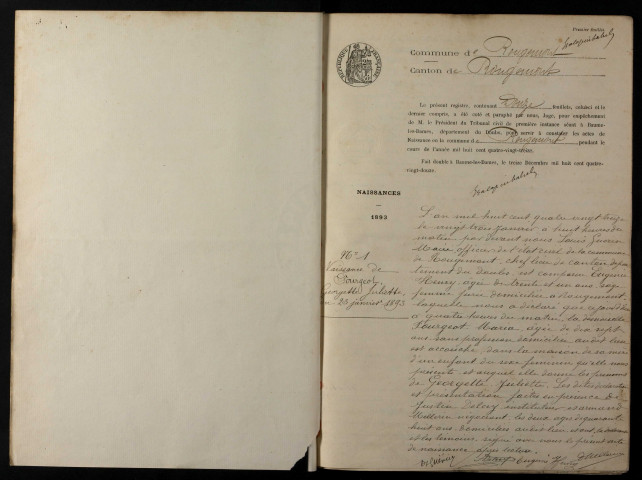 Premier Feuillet
Commune de Rougemont
Canton de Rougemont
RÉPUBLIQUE FRANÇAISE
Le présent registre, contenant Douze feuillets, celui-ci et le
dernier compris, a été coté et paraphé par nous, Juge, pour empêchement
de M. le Président du Tribunal civil de première instance séant à Baume-
les-Dames, département du Doubs, pour servir à constater les actes de
Naissances en la commune de Rougemont pendant le
cours de l'année mil huit cent quatre-vingt-treize.
Fait double à Baume-les-Dames, le treize Décembre mil huit cent quatre-
vingt-douze.
NAISSANCES
1893
N° 1
Naissance de
Pourgeot
Georgette Juliette
23 janvier 1893
L'an mil huit cent quatre vingt treize
le vingt trois janvier à huit heures du
matin, par devant nous Louis
Maire officier de l'état civil de la commune
de Rougemont, chef lieu de canton, dépar-
tement du Doubs, est comparue Eugénie
Henry agée de trente et un ans, sage
femme jurée domiciliée à Rougemont,
laquelle nous a déclaré que
à quatre heures du matin, la demoiselle
Pourgeot Maria, agée de dix sept
ans, sans profession, domiciliée audit lieu
est accouchée, dans la maison de sa mère
d'un enfant du sexe féminin qu'elle nous
présente et auquel elle donne les prénoms
de Georgette Juliette. Les dites déclaration
et présentation faites en présence de
Justin instituteur, et Armand
négociant, les deux agés de quarante
huit ans, domiciliés audit lieu,
et les témoins, signé avec nous le présent acte
de naissance après lecture.